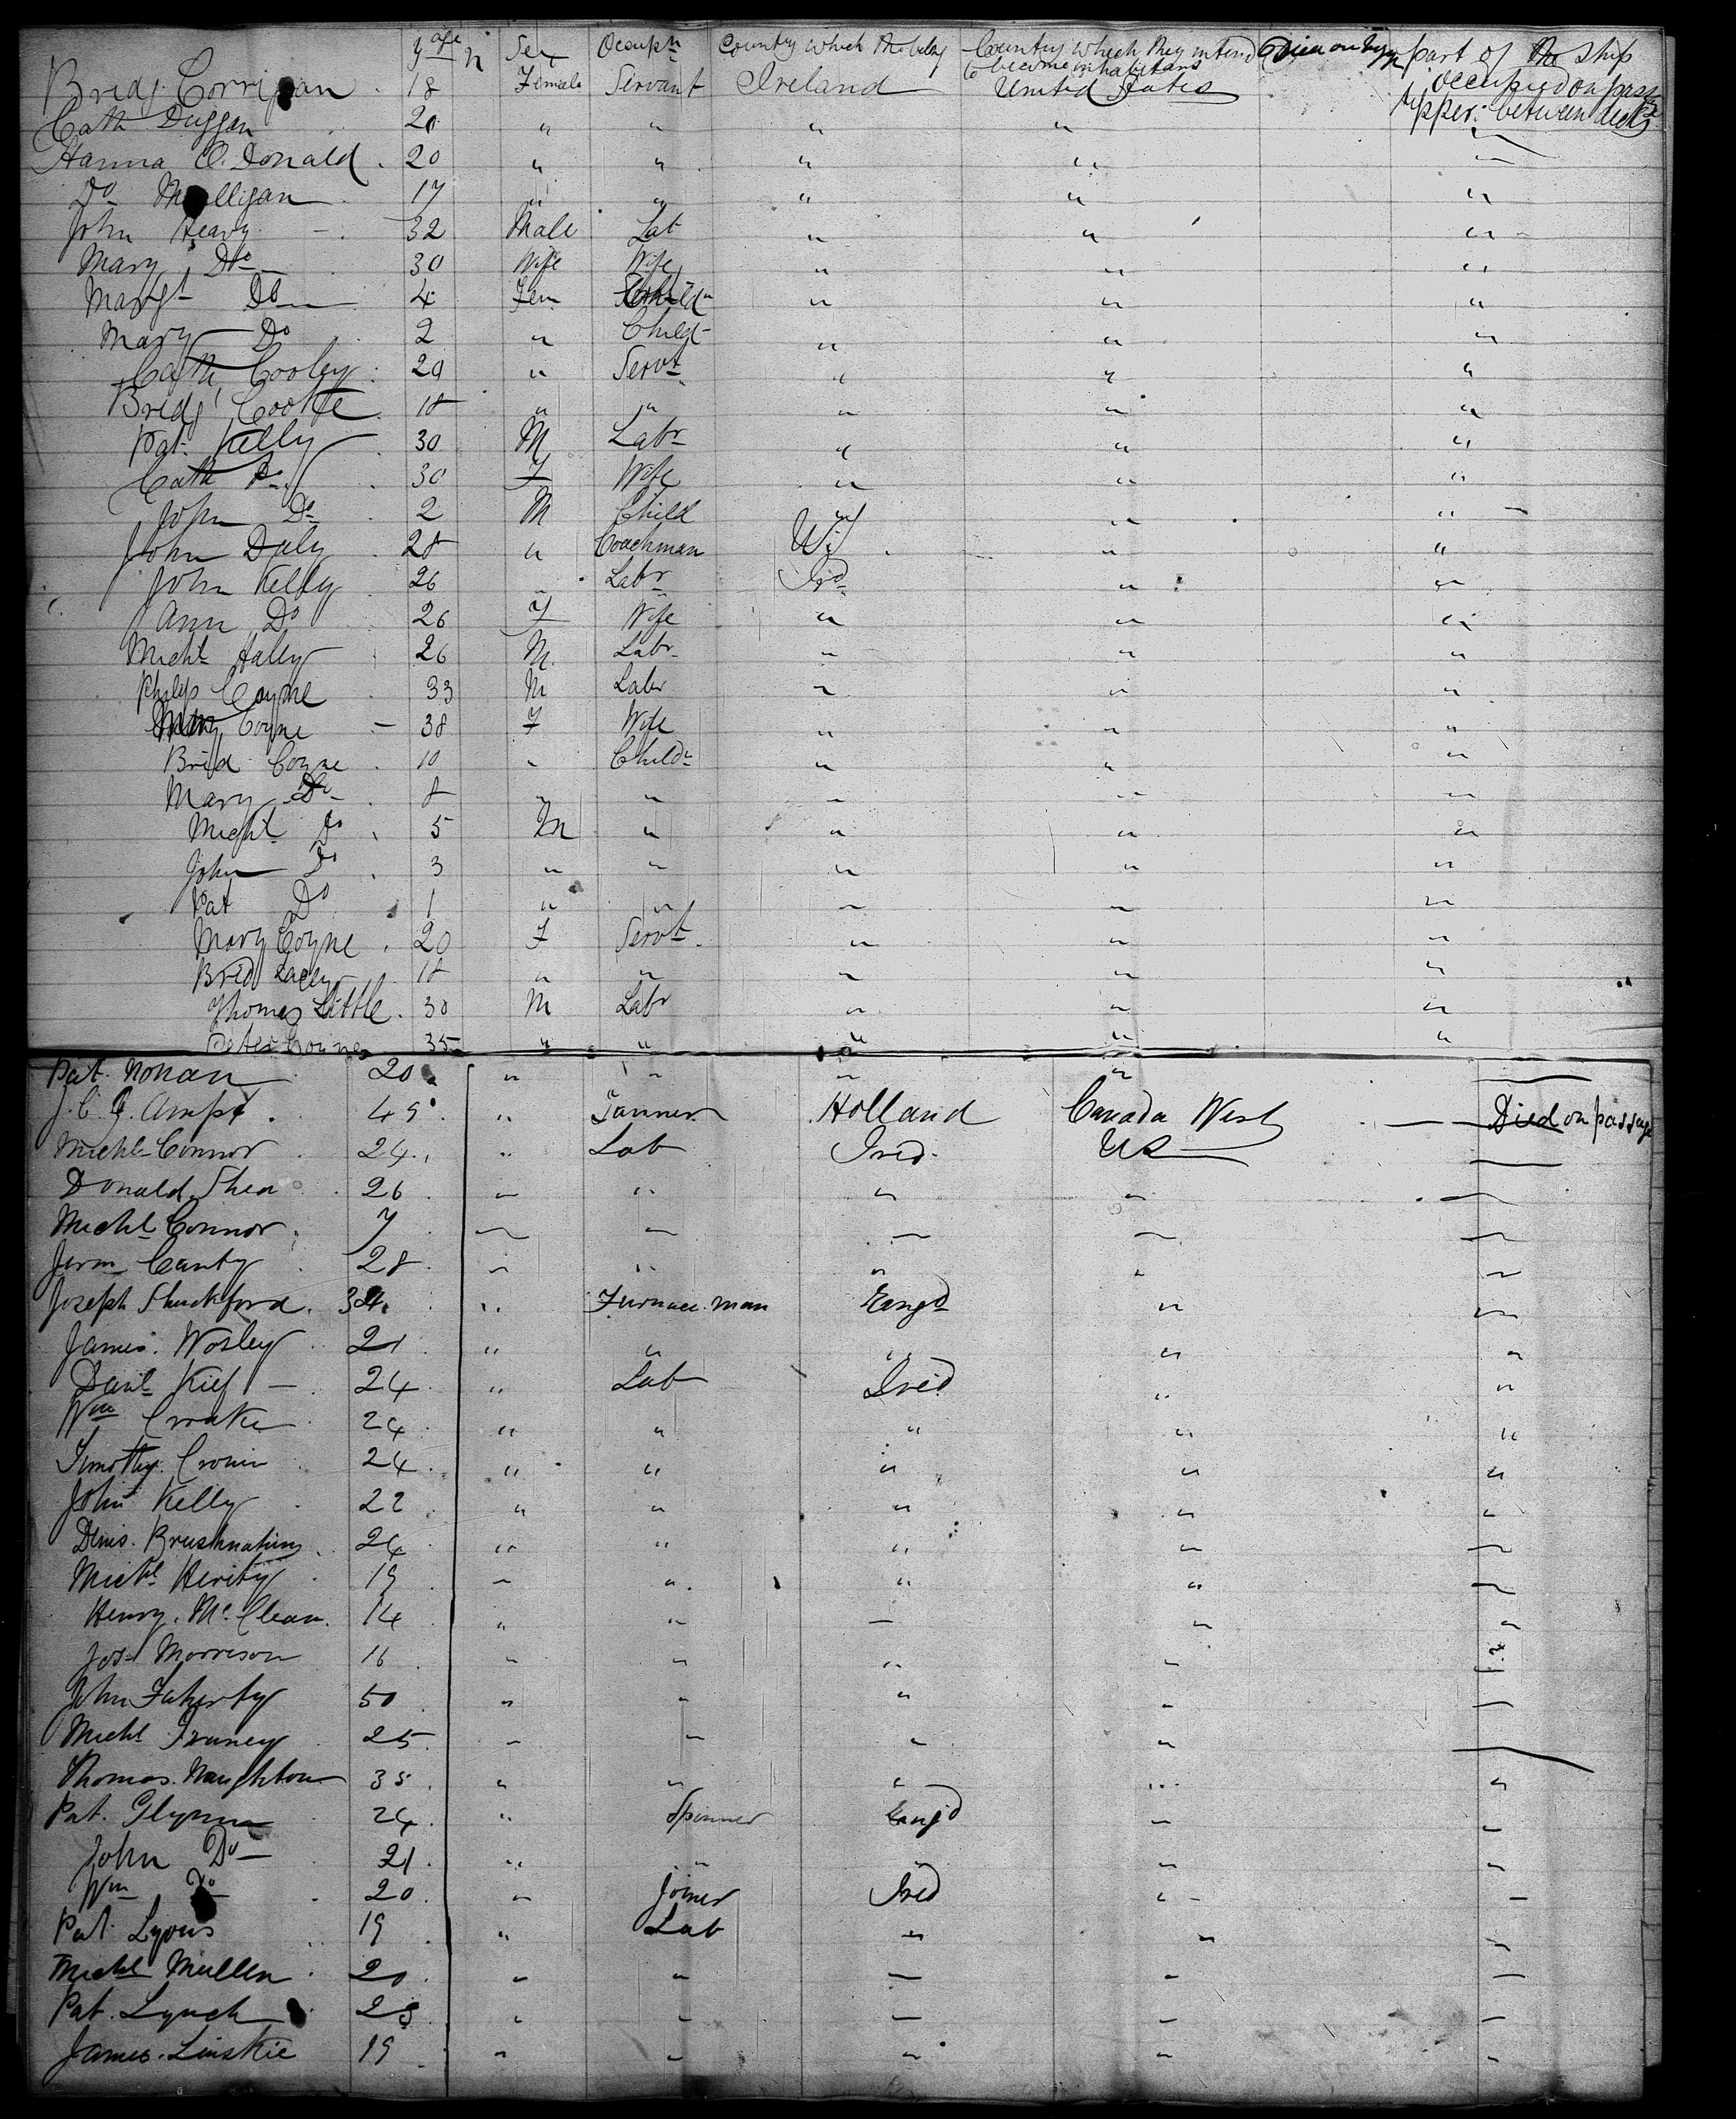 age Sex Occupn Country which they belong Country which they intend to become inhabitants Died on Voyage part of the ship occupied on pass
Bridg. Corrigan 18 Female Servant Ireland United States Upper between decks
Cath Duggan 20 " " " "
Hanna O. Donald 20 " " " " "
Do Mulligan 17 " " " " "
John Heavy 32 Male Lab " " "
Mary Do 30 Wife Wife " " "
Margt Do 4 Fem Child " " "
Mary Do 2 " Child " " "
Cath Cooley 20 " Servt " " "
Bridg Cooke 18 " " " " "
Pat. Kelly 30 M Labr " " "
Cath Do 30 F Wife " " "
John Do 2 M Child " " "
John Daly 28 " Coachman " "
John Kelly 26 " Labr Ird " "
Ann Do 26 F Wife " " "
Michl Haley 26 M Labr " " "
Philip Coyne 33 M Labr " " "
Mary Coyne 38 F Wife " " "
Brid Coyne 10 " Child " " "
Mary Do 8 " " " " "
Michl Do 5 M " " " "
John Do 3 " " " " "
Pat Do 1 " " " " "
Mary Coyne 20 F Servt " " "
Brid Lacey 18 " " " " "
Thomas Little 30 M Labr " " "
Peter Coyne 35 " " " " "
Pat. Nonan 20 " " " "
J. C. G. Ampt 45 " Tanner Holland Canada West Died on passage
Michl Connor 24 " Lab Ired US
Donald Shea 26 " " " "
Michl Connor 7 " " " " "
Jerm Canty 28 " " " " "
Joseph Shuckford 34 " Furnace man Engd " "
James Wosley 21 " " " " "
Danl Kief 24 " Lab Ired " "
Wm Croake 24 " " " " "
Timothy Cronin 24 " " " " "
John Kelly 22 " " " " "
Denis. Brushnahim 24 " " " " "
Michl Herity 19 " " " " "
Henry. Mc Clean. 14 " " " " "
Jos Morrison 16 " " " "
John Faherty 50 " " " " "
Michl Franey 25 " " " "
Thomas. Naughton 35 " " " " "
Pat. Glynn 24 " Spinner Engd " "
John Do 21 " " " " "
Wm Do 20 " Joiner Ired " "
Pat Lyons 19 " Lab " " "
Michl Mullen 20 " " " " "
Pat. Lynch 25 " " " " "
James. Linskie 19 " " " " "